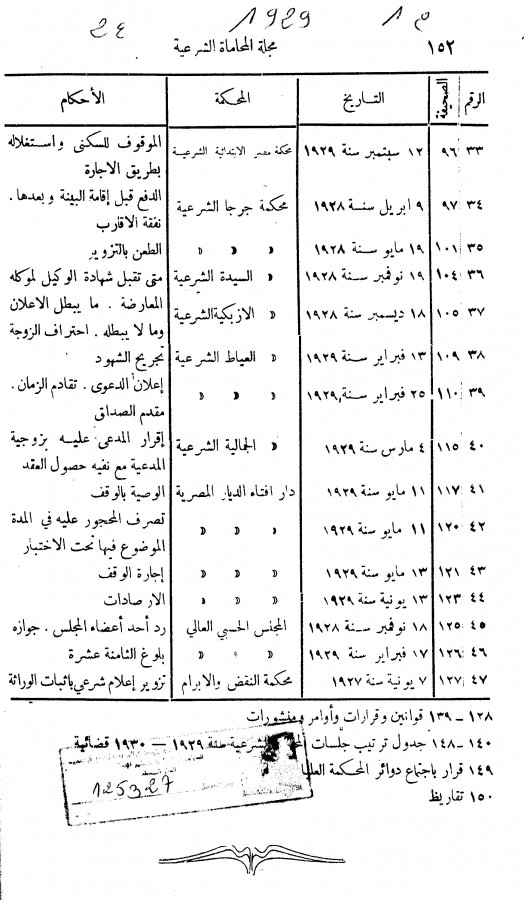 24 1929 م 1
١٥٢ مجلة المحاماة الشرعية
الرقم الصحيفة التاريخ المحكمة الأحكام
٣٣ ٩٦ ١٢ سبتمبر سنة ١٩٢٩ محكمة مصر الابتدائية الشرعية الموقوف للسكنى واستغلاله
بطريق الاجارة
٣٤ ٩٧ ٩ ابريل سنة ١٩٢٨ محكمة جرجا الشرعية الدفع قبل إقامة البينة وبعدها .
نفقة الاقارب
٣٥ ١٠١ ١٩ مايو سنة ١٩٢٨ » » » الطعن بالتزوير
٣٦ ١٠٤ ١٩ نوفمبر سنة ١٩٢٨ » السيدة الشرعية متى تقبل شهادة الوكيل لموكله
٣٧ ١٠٥ ١٨ ديسمبر سنة ١٩٢٨ » الازبكية الشرعية المعارضة . ما يبطل الاعلان
وما لا يبطله . احتراف الزوجة
٣٨ ١٠٩ ١٣ فبراير سنة ١٩٢٩ » العياط الشرعية تجريح الشهود
٣٩ ١١٠ ٢٥ فبراير سنة ١٩٢٩ » » » إعلان الدعوى . تقادم الزمان .
مقدم الصداق
٤٠ ١١٥ ٤ مارس سنة ١٩٢٩ » الجمالية الشرعية إقرار المدعى عليه بزوجية
المدعية مع نفيه حصول العقد
٤١ ١١٧ ١١ مايو سنة ١٩٢٩ دار افتاء الديار المصرية الوصية بالوقف
٤٢ ١٢٠ ١١ مايو سنة ١٩٢٩ » » » تصرف المحجور عليه في المدة
الموضوع فيها تحت الاختبار
٤٣ ١٢١ ١٣ مايو سنة ١٩٢٩ » » » إجارة الوقف
٤٤ ١٢٣ ١٣ يونية سنة ١٩٢٩ » » » الارصادات
٤٥ ١٢٥ ١٨ نوفمبر سنة ١٩٢٨ المجلس الحسبي العالي رد أحد أعضاء المجلس . جوازه
٤٦ ١٢٦ ١٧ فبراير سنة ١٩٢٩ » » » بلوغ الثامنة عشرة
٤٧ ١٢٧ ٧ يونية سنة ١٩٢٧ محكمة النقض والابرام تزوير إعلام شرعي باثبات الوراثة
١٢٨ – ١٣٩ قوانين وقرارات وأوامر ومنشورات
١٤٠ – ١٤٨ جدول ترتيب جلسات الشرعية سنة ١٩٢٩ — ١٩٣٠ قضائية
١٤٩ قرار باجتماع دوائر المحكمة العليا
١٥٠ تقاريظ
125327